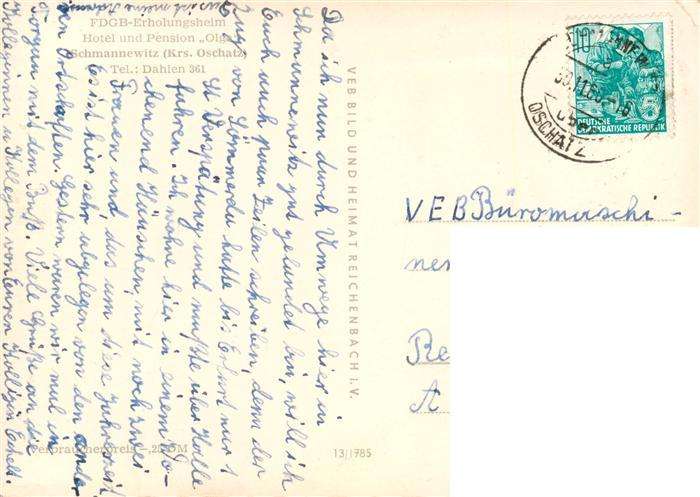 FDGB-Erholungsheim
Hotel und Pension „Olga“
Schmannewitz (Krs. Oschatz)
Tel.: Dahlen 361
Da ich nun durch Umwege hier in
Schmannewitz gut gelandet bin, will ich
Euch auch paar Zeilen schreiben, denn der
Zug von Sömmerda hatte bis Erfurt nur 1
St Verspätung und mußte über Halle
fahren. Ich wohne hier in einem
Häuschen, mit noch zwei
Frauen und, das um diese Jahreszeit
Es ist hier sehr abgelegen von den ander
en Ortschaften. Gestern waren wir mal in
Torgau mit dem Bus. Viele Grüße an die
Kolleginnen u. Kollegen von Euren Kollegen
Verbraucherpreis –,20 DM
VEB BILD UND HEIMAT REICHENBACH I. V.
13/1785
10
5
DEUTSCHE
DEMOKRATISCHE REPUBLIK
OSCHATZ
VEB Büromaschi-
ner
Re
A